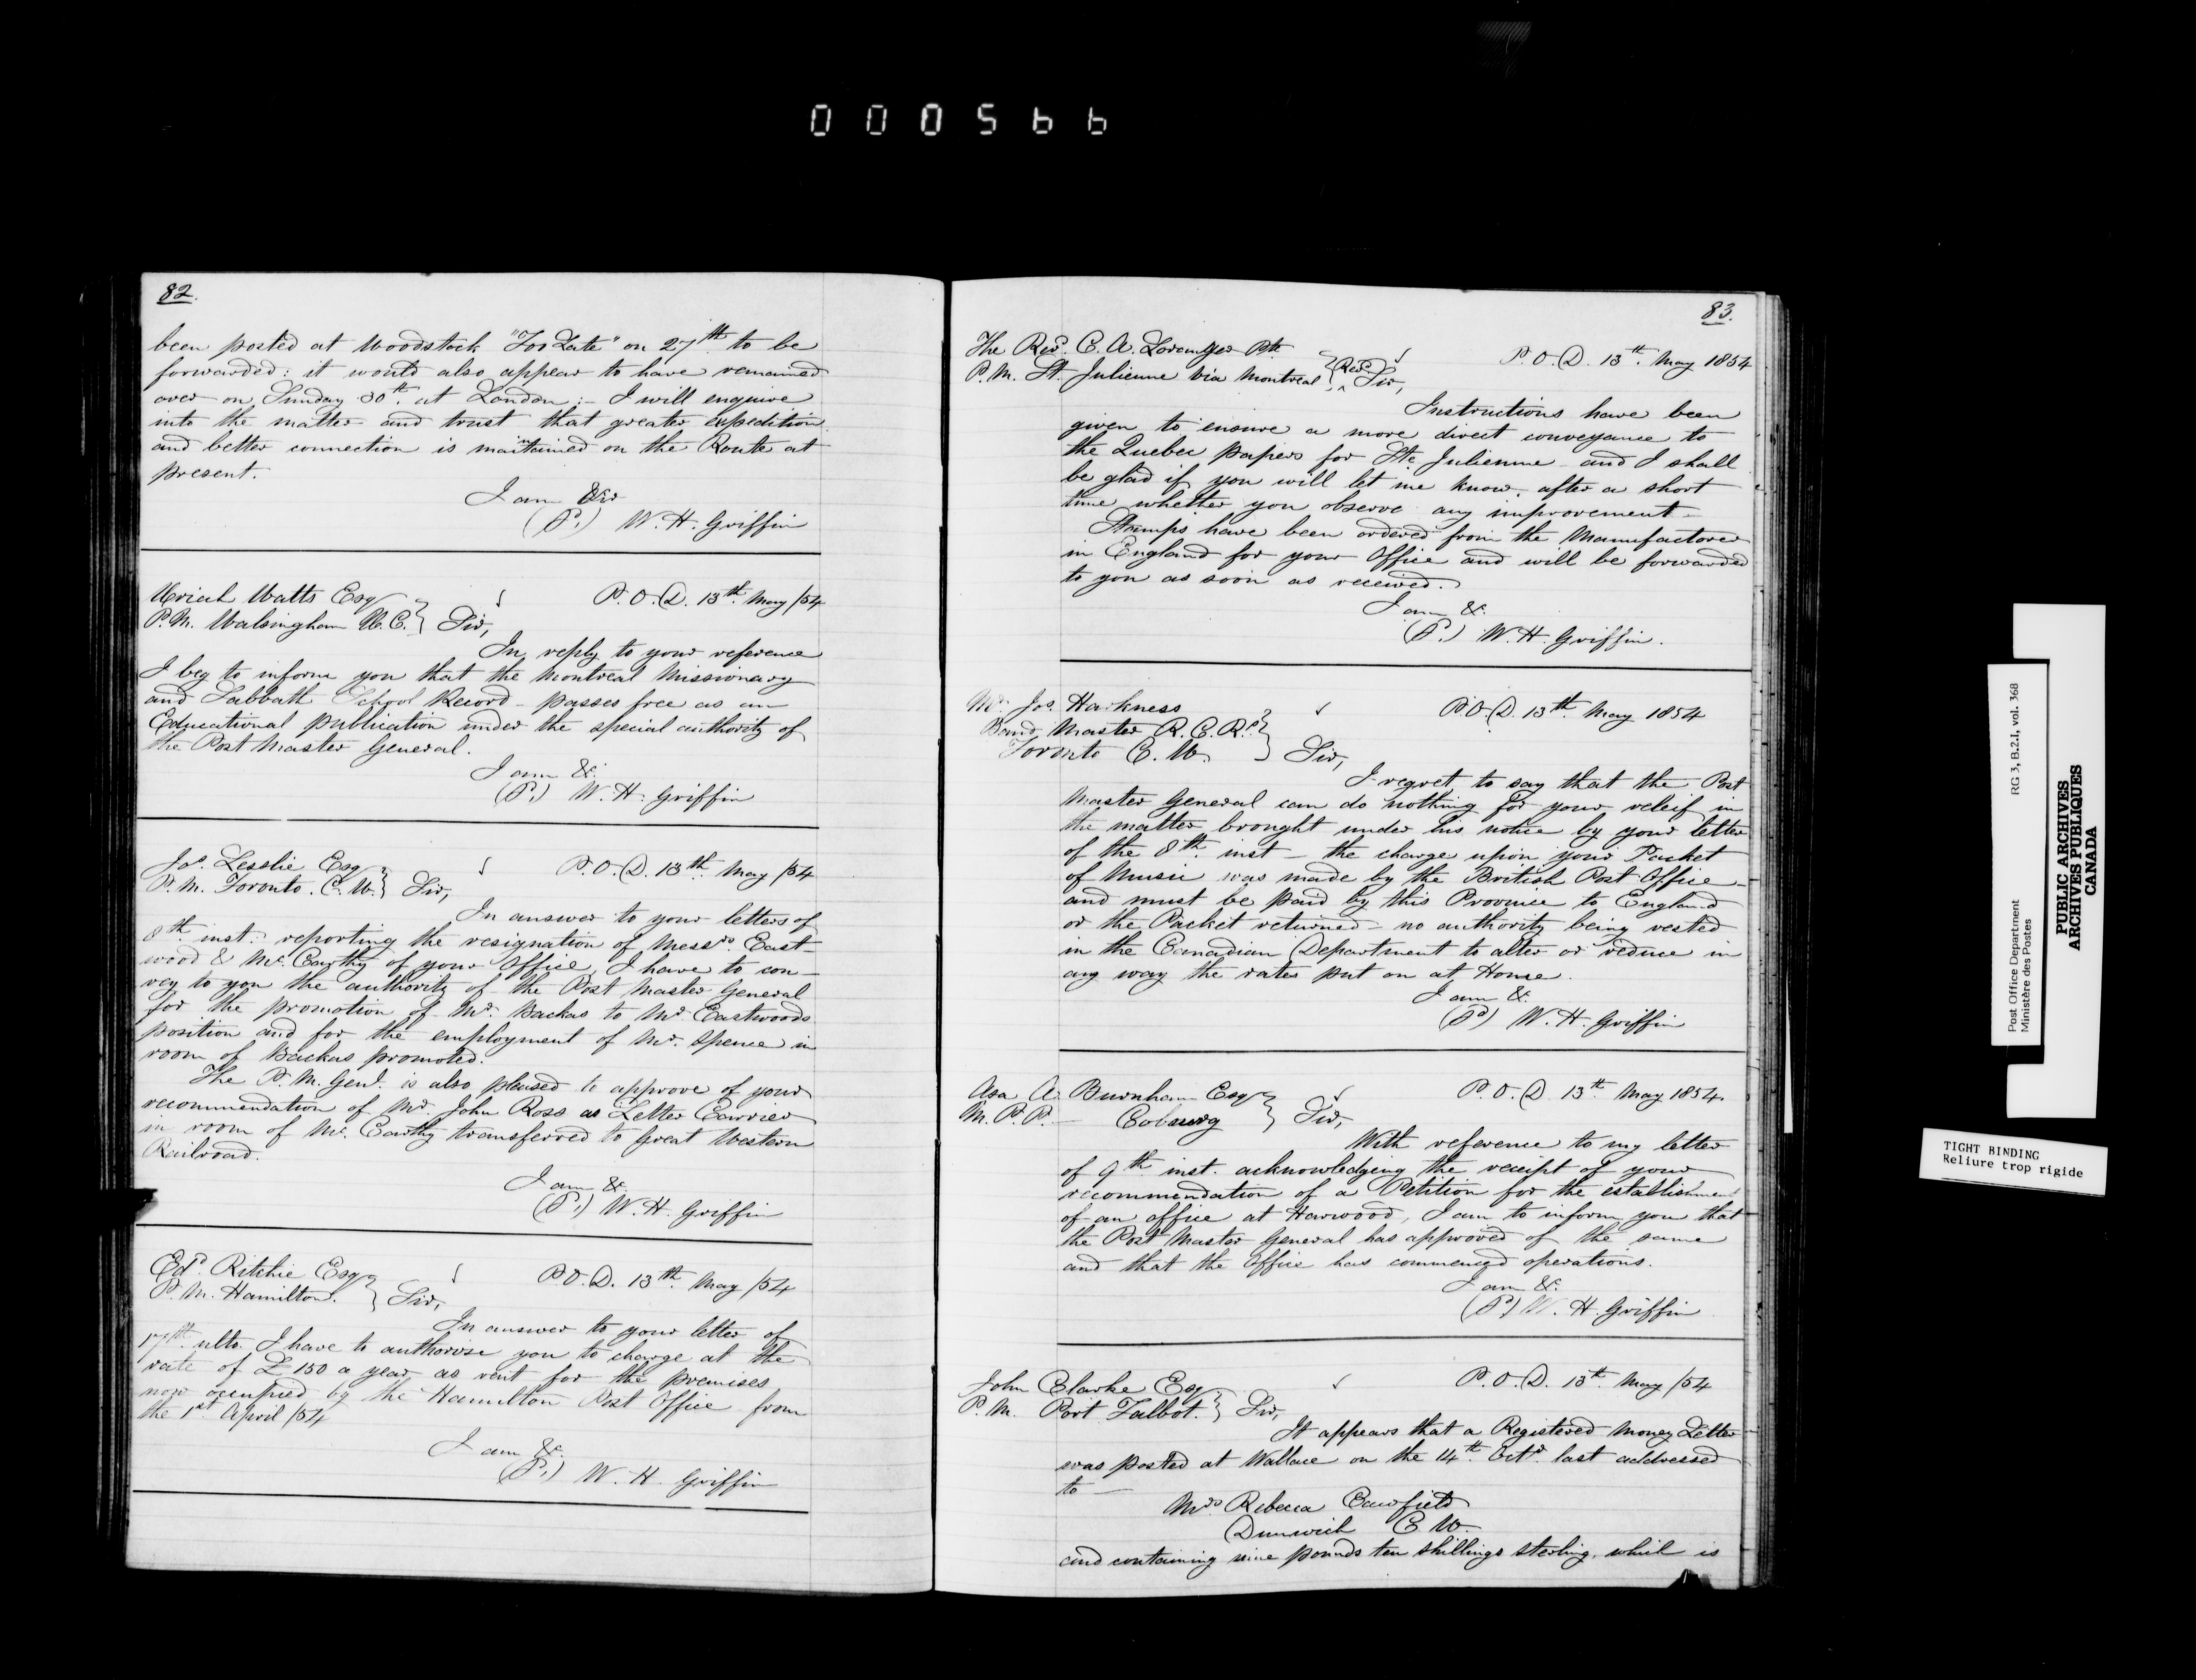 000566
82.
been posted at Woodstock "Too Late" on 27th to be
forwarded: it would also appear to have remained
over on Sunday 30th at London:- I will enquire
into the matter and trust that greater expedition
and better connection is maintained on the Route at
present.
I am &c
W. H. Griffin
Uriah Watts Esq
P.M. Walsingham U.C. } Sir,
P.O.D. 13th May /54
In reply to your reference
I beg to inform you that the Montreal Missionary
and Sabbath School Record - passes free as an
Educational publication under the special authority of
the Post Master General.
I am &c
W. H. Griffin
Jos. Lesslie Esq
P.M. Toronto. C.W. } Sir,
P.O.D. 13th May /54
In answer to your letters of
8th inst. reporting the resignation of Messrs. East-
wood & McCarthy of your Office, I have to con-
vey to you the authority of the Post Master General
for the promotion of Mr. Backas to Mr. Eastwoods
position and for the employment of Mr. Spence in
room of Backas promoted.
The P.M. Genl. is also pleased to approve of your
recommendation of Mr. John Ross as Letter Carrier
in room of McCarthy transferred to Great Western
Railroad.
I am &c
W. H. Griffin
Edd. Ritchie Esq
P.M. Hamilton. } Sir,
P.O.D. 13th May /54
In answer to your letter of
17th ulto. I have to authorise you to charge at the
rate of £150 a year as rent for the premises
now occupied by the Hamilton Post Office from
the 1st April /54
I am &c
W. H. Griffin
83.
The Revd. C. A. Loranger
P.M. St. Julienne via Montreal } Revd. Sir,
P.O.D. 13th May 1854
Instructions have been
given to ensure a more direct conveyance to
the Quebec papers for Ste Julienne - and I shall
be glad if you will let me know, after a short
time whether you observe any improvement -
Stamps have been ordered from the Manufacturer
in England for your Office and will be forwarded
to you as soon as received.
I am &c
W. H. Griffin.
Mr. Jos. Harkness
Band Master R.C.R. }
Toronto C.W. } Sir,
P.O.D. 13th May 1854
I regret to say that the Post
Master General can do nothing for your releif in
the matter brought under his notice by your letter
of the 8th inst - the charge upon your Packet
of Music was made by the British Post Office -
and must be paid by this Province to England
or the Packet returned - no authority being vested
in the Canadian Department to alter or reduce in
any way the rates put on at Home.
I am &c
W. H. Griffin
Asa A. Burnham Esq
M.P.P. - Cobourg } Sir,
P.O.D. 13th May 1854.
With reference to my letter
of 9th inst. acknowledging the receipt of your
recommendation of a Petition for the establishment
of an office at Harwood, I am to inform you that
the Post Master General has approved of the same
and that the Office has commenced operations.
I am &c
W. H. Griffin
John Clarke Esq
P.M. Port Talbot. } Sir,
P.O.D. 13th May /54
It appears that a Registered Money Letter
was posted at Wallace on the 14th Octr. last addressed
to -
Mrs Rebecca
Dunwich C W.
and containing nine pounds ten shillings sterling, which is
Post Office Department
Ministère des Postes
RG 3, B.2.I, vol. 368
PUBLIC ARCHIVES
ARCHIVES PUBLIQUES
CANADA
TIGHT BINDING
Reliure trop rigide